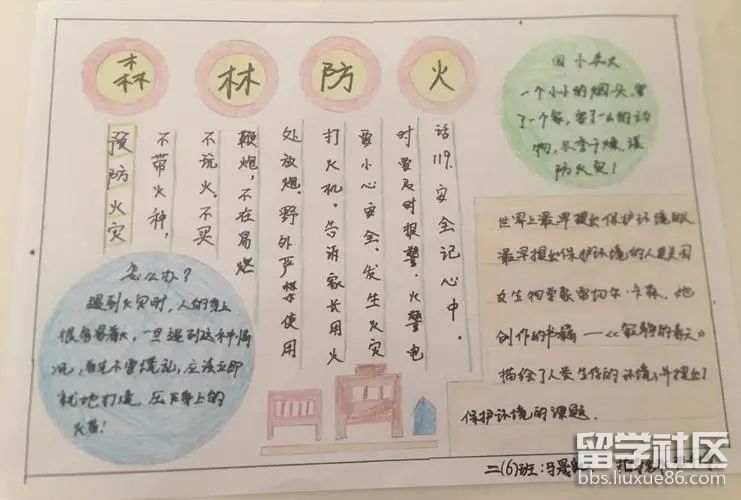 森 林 防 火
预防火灾
不带火种，
不玩火。不买
鞭炮，不在易燃
处放炮。野外严禁使用
打火机。告诉家长用火
要小心安全。发生火灾
时要及时报警。火警电
话119.安全记心中。
因小失大
一个小小的烟头，害
了一个家，害了一山的动
物，冬季干燥，谨
防火灾！
怎么办？
遇到火灾时，人的身上
很容易着火，一旦遇到这种情
况，首先不要慌乱，应该立即
就地打滚，压灭身上的
火苗！
世界上最早提出保护环境的人
最早提出保护环境的人是美国
女生物学家雷切尔·卡森。她
创作的书籍——《寂静的春天》
描绘了人类生存的环境，并提出了
保护环境的课题.
二(6)班:马晟
留学社区
bbs.liuxue86.com